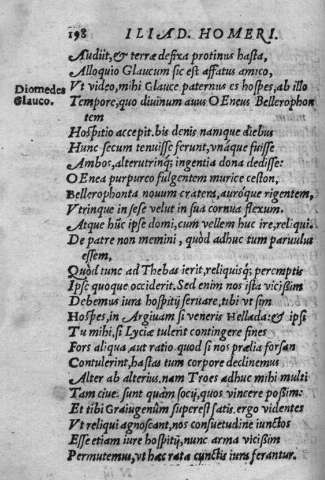 198 ILIAD. HOMERI.
Audiit, & terræ defixa protinus hasta,
Alloquio Glaucum sic est affatus amico,
Diomedes Glauco.
Vt video, mihi Glauce paternus es hospes, ab illo
Tempore, quo diuinum auus OEneus Bellerophon
tem
Hospitio accepit. bis denis namque diebus
Hunc secum tenuisse ferunt, vnaque fuisse
Ambos, alterutrinq; ingentia dona dedisse:
OEnea purpureo fulgentem murice ceston,
Bellerophonta nouum cratera, auróque rigentem,
Vtrinque in sese velut in sua cornua flexum.
Atque húc ipse domi, cum vellem huc ire, reliqui.
De patre non memini, quòd adhuc tum paruulus
essem,
Quòd tunc ad Thebas ierit, reliquisq; peremptis
Ipse quoque occiderit. Sed enim nos ista vicissim
Debemus iura hospitij seruare, tibi vt sim
Hospes, in Argiuam si veneris Hellada: & ipsi
Tu mihi, si Lyciæ tulerit contingere fines
Fors aliqua aut ratio. quod si nos prælia forsan
Contulerint, hastas tum corpore declinemus
Alter ab alterius. nam Troes adhuc mihi multi
Tam ciues sunt quàm socij, quos vincere possim:
Et tibi Graiugenûm superest satis. ergo videntes
Vt reliqui agnoscant, nos consuetudine iunctos
Esse etiam iure hospitij, nunc arma vicissim
Permutemus, vt hac rata cunctis iura ferantur.